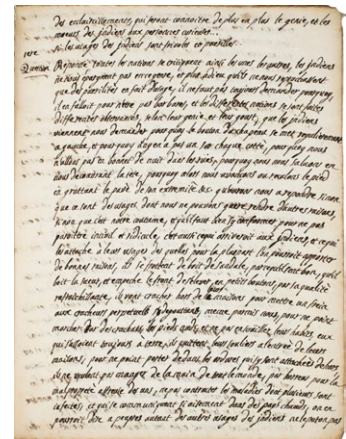 des eclaircissemens, qui feront connoitre de plus en plus le genie, et les
moeurs des jndiens aux personnes curieuses...
1ere
si les usages des jndiens sont fondés en puerilité
Question
Reponse toutes les nations se critiquent ainsi les unes les autres, les jndiens
ne nous epargnent pas en reponse, et plut a dieu qu'ils ne nous reprochassent
que des puerilités en fait d'usage, il ne faut pas toujours demander pourquoy,
il en falloit pour n'être pas barbares, et les differentes nations se sont faites
differentes observances, selon leur genie, et leur gout, que les jndiens
viennent nous demander pourquoy le bouton du chapeau se met regulierement
a gauche, et pourquoy il n'y en a pas un sur chaque coté, pour quoy nous
n'allons pas en bonnet de nuit dans les rües, pourquoy nous nous saluons en
nous decouvrant la tete, pourquoy alors nous avançons ou reculons le pied
en grattant le pavé de son extremité &c. qu'aurons nous a repondre si non
que ce sont des usages, dont nous ne pouvons guere rendre d'autres raisons,
si non que c'est notre coutume, et qu'il faut bien s'y conformer pour ne pas
paroitre incivil et ridicule, c'est aussi ce qui arriveroit aux jndiens, et ce qui
les attache a leurs usages des quels pour la plupart l'on pourroit apporter
de bonnes raisons, ils se frottent de bois de sandale, parce qu'il sent bon, qu'il
boit la sueur, et empeche le front de s'elever en petits boutons, par sa qualité
rafraichissante, ils vont cracher hors de la maison pour mettre un frein
aux cracheurs perpetuels et degoutans, meme parmi nous, pour ne point
marcher sur des crachats les pieds nuds, et ne pas en souiller leurs habits, eux
qui s'assoient toujours a terre, ils quittent leurs souliers a l'entrée de leurs
maisons, pour ne point porter dedans les ordures qui y sont attachées de dehors,
ils ne veulent pas manger de la main de tout le monde, par horreur pour la
malpropreté affreuse des uns, ne pas contracter les maladies dont plusieurs sont
infectés, et qui se communiquent si aisement dans les pays chauds, on en
pourroit dire a peu pres autant des autres usages des jndiens, ne leut on pas